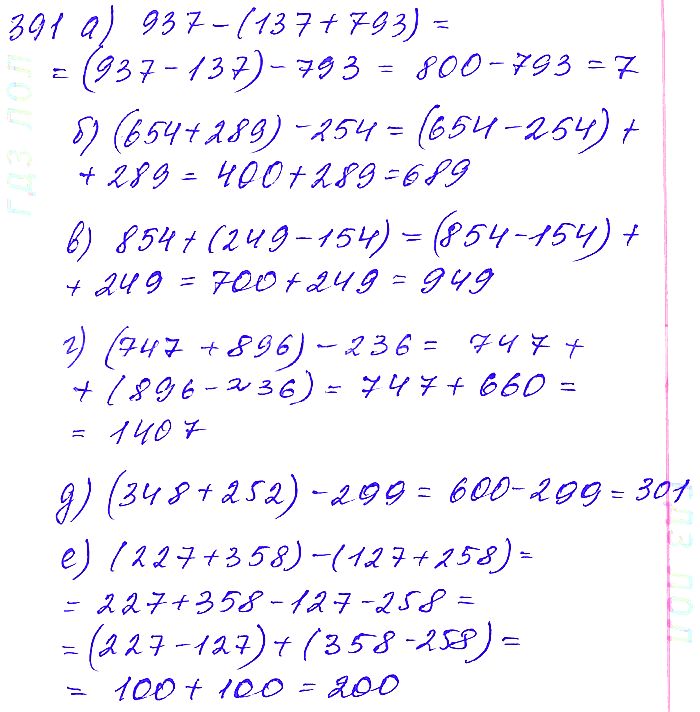 391 а) 937 - (137 + 793) =
= (937 - 137) - 793 = 800 - 793 = 7
б) (654 + 289) - 254 = (654 - 254) +
+ 289 = 400 + 289 = 689
в) 854 + (249 - 154) = (854 - 154) +
+ 249 = 700 + 249 = 949
г) (747 + 896) - 236 = 747 +
+ (896 - 236) = 747 + 660 =
= 1407
д) (348 + 252) - 299 = 600 - 299 = 301
е) (227 + 358) - (127 + 258) =
= 227 + 358 - 127 - 258 =
= (227 - 127) + (358 - 258) =
= 100 + 100 = 200
гдз лол
гдз лол